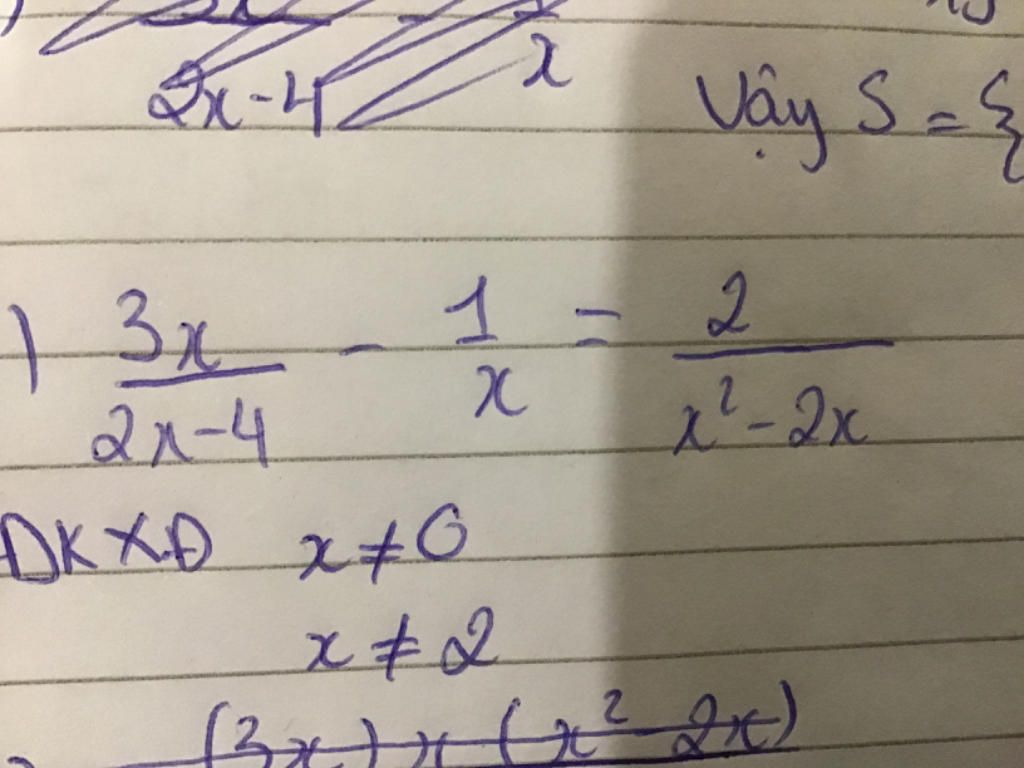 2x-4 x
Vậy S = {
) 3x/2x-4 - 1/x = 2/x²-2x
ĐKXĐ x ≠ 0
x ≠ 2
(3x) x (x² 2x)